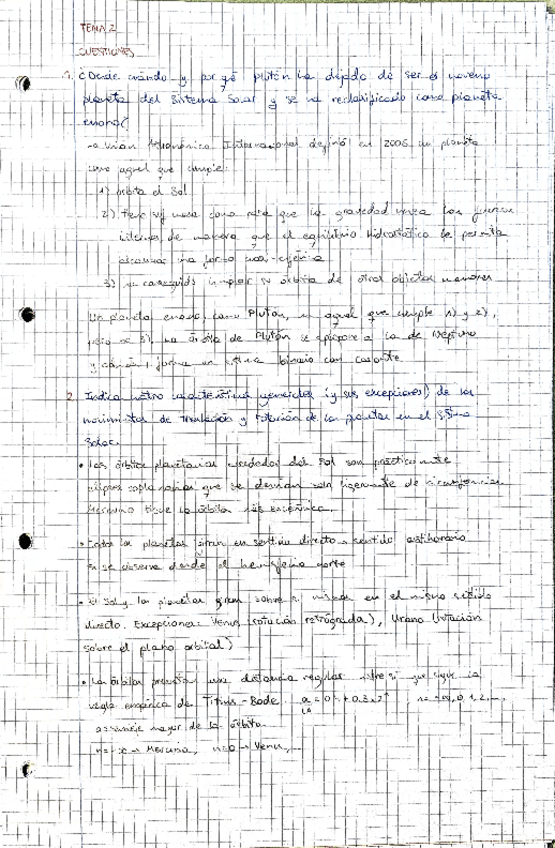 TEMA 2
CUESTIONES
1. ¿Desde cuándo y por qé plutón ha dejado de ser el noveno
planeta del Sistema Solar y se ha reclasificado como planeta
enano?
La Unión Astronómica Internacional definió en 2006 un planeta
como aquel que cumple:
1) orbita el Sol
2) tiene suf masa como para que la gravedad venza las fuerzas
internas de manera que el equilibrio hidrostático le permita
alcanzar una forma casi-esférica
3) ha conseguido limpiar su órbita de otros objetos menores
Un planeta enano, como Plutón, es aquel que cumple 1) y 2),
pero no 3). La órbita de Plutón se a la de Neptuno
y además forma un sistema binario con Caronte
2. Indica cuatro características generales (y sus excepciones) de los
movimientos de traslación y rotación de los planetas en el Sistema
Solar.
• Las órbitas planetarias alrededor del Sol son prácticamente
elipses coplanarias que se desvían sólo ligeramente de circunferencias
Mercurio tiene la órbita más excéntrica.
• Todos los planetas giran en sentido directo → sentido antihorario
si se observa desde el hemisferio norte
• El Sol y los planetas giran sobre sí mismos en el mismo sentido
directo. Excepciones: Venus (rotación retrógrada), Urano (rotación
sobre el plano orbital)
• Las órbitas presentan una distancia regular entre sí que sigue la
regla empírica de Titius-Bode. n = -∞, 0, 1, 2, ...
a = semieje mayor de la órbita
n = -∞ → Mercurio, n=0 → Venus, ...